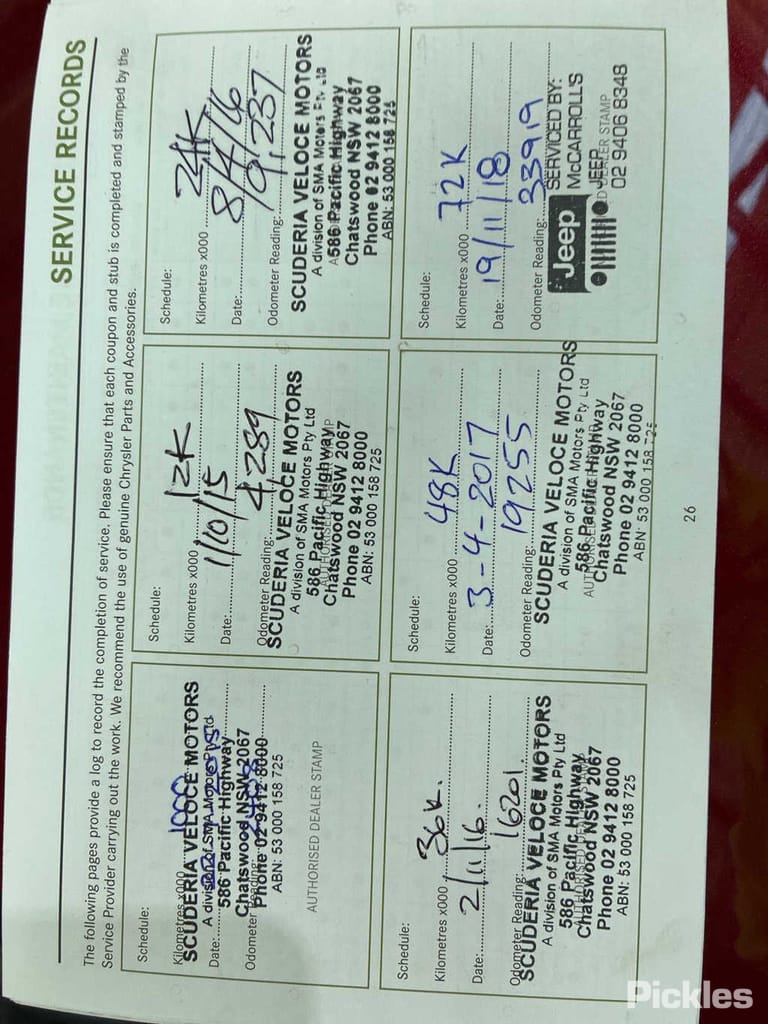 SERVICE RECORDS
The following pages provide a log to record the completion of service. Please ensure that each coupon and stub is completed and stamped by the
Service Provider carrying out the work. We recommend the use of genuine Chrysler Parts and Accessories.
Schedule:
Kilometres x000 1000
Date:
Odometer Reading:
SCUDERIA VELOCE MOTORS
A division of SMA Motors Pty Ltd
586 Pacific Highway
Chatswood NSW 2067
Phone 02 9412 8000
ABN: 53 000 158 725
AUTHORISED DEALER STAMP
Schedule:
Kilometres x000 12K
Date: 1/10/15
Odometer Reading: 4289
SCUDERIA VELOCE MOTORS
A division of SMA Motors Pty Ltd
586 Pacific Highway
AUTHORISED DEALER STAMP
Chatswood NSW 2067
Phone 02 9412 8000
ABN: 53 000 158 725
Schedule:
Kilometres x000 24K
Date: 8/4/16
Odometer Reading: 9,237
SCUDERIA VELOCE MOTORS
A division of SMA Motors Pty Ltd
586 Pacific Highway
Chatswood NSW 2067
Phone 02 9412 8000
ABN: 53 000 158 725
Schedule:
Kilometres x000 36K.
Date: 2/11/16.
Odometer Reading: 16201.
SCUDERIA VELOCE MOTORS
A division of SMA Motors Pty Ltd
586 Pacific Highway
AUTHORISED DEALER STAMP
Chatswood NSW 2067
Phone 02 9412 8000
ABN: 53 000 158 725
Schedule:
Kilometres x000 48K
Date: 3-4-2017
Odometer Reading: 19255
SCUDERIA VELOCE MOTORS
A division of SMA Motors Pty Ltd
586 Pacific Highway
AUTHORISED
Chatswood NSW 2067
Phone 02 9412 8000
ABN: 53 000 158 725
Schedule:
Kilometres x000 72K
Date: 19/11/18
Odometer Reading: 33919
Jeep
SERVICED BY:
McCARROLL'S
JEEP
DEALER STAMP
02 9406 8348
26
Pickles